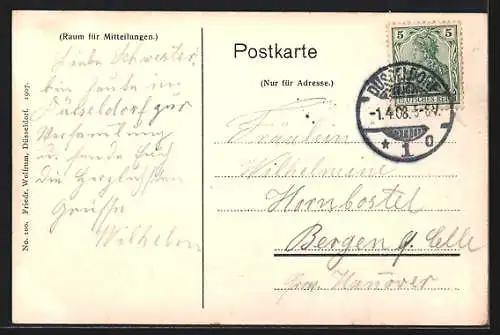 (Raum für Mitteilungen.)
Liebe Schwester,
bin heute in
Düsseldorf zur
Versamlung
u. sende Euch
die herzlichsten
Grüsse
Wilhelm
No. 100. Friedr. Wolfrum, Düsseldorf. 1907.
Postkarte
(Nur für Adresse.)
5 5
DEUTSCHES REICH
DÜSSELDORF
-1.4.08. 5-6V.
* 1 o
Fräulein
Wilhelmine
Hornbostel
Bergen b/ Celle
Prov. Hanover